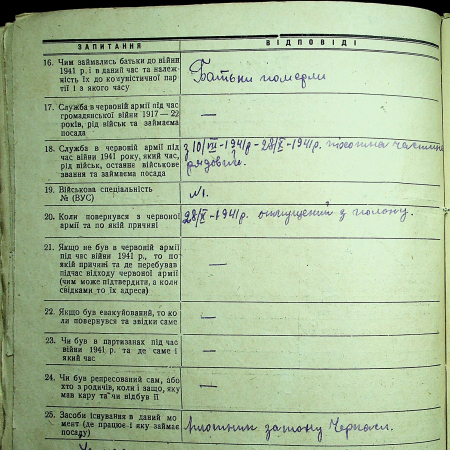 ЗАПИТАННЯ
ВІДПОВІДІ
16. Чим займались батьки до війни
1941 р. і в даний час та належ-
ність їх до комуністичної пар-
тії і з якого часу
Батьки померли
17. Служба в червоній армії під час
громадянської війни 1917—22
років, рід військ та займаєма
посада
—
18. Служба в червоній армії під
час війни 1941 року, який час,
рід військ, останнє військове
звання та займаєма посада
з 10/VII-1941р - 28/X-1941р. піхотна частина
рядовим.
19. Військова спеціальність
№ (ВУС)
№1.
20. Коли повернувся з червоної
армії та по якій причині
28/X-1941р. опущений з полону.
21. Якщо не був в червоній армії
під час війни 1941 р., то по
якій причині та де перебував
підчас відходу червоної армії
(чим може підтвердити, а коли
свідками то їх адреса)
—
22. Якщо був евакуйований, то ко
ли повернувся та звідки саме
—
23. Чи був в партизанах під час
війни 1941 р. та де саме і
який час
—
24. Чи був репресований сам, або
хто з родичів, коли і защо, яку
мав кару та чи відбув її
—
25. Засоби існування в даний мо
мент (де працює і яку займає
посаду)
плотник затону Черкаси.